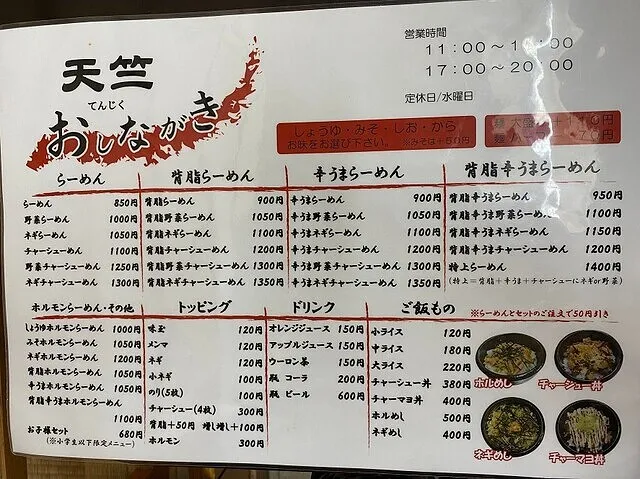 営業時間
11:00～1 :00
17:00～20:00
定休日/水曜日
天竺
てんじく
おしながき
しょうゆ・みそ・しお・から
お味をお選び下さい。 ※みそは+50円
麺 大盛 0円
麺 70円
らーめん
らーめん 850円
野菜らーめん 1000円
ネギらーめん 1050円
チャーシューめん 1100円
野菜チャーシューめん 1250円
ネギチャーシューめん 1300円
背脂らーめん
背脂らーめん 900円
背脂野菜らーめん 1050円
背脂ネギらーめん 1100円
背脂チャーシューめん 1200円
背脂野菜チャーシューめん 1300円
背脂ネギチャーシューめん 1350円
辛うまらーめん
辛うまらーめん 900円
辛うま野菜らーめん 1050円
辛うまネギらーめん 1100円
辛うまチャーシューめん 1200円
辛うま野菜チャーシューめん 1300円
辛うまネギチャーシューめん 1350円
背脂辛うまらーめん
背脂辛うまらーめん 950円
背脂辛うま野菜らーめん 1100円
背脂辛うまネギらーめん 1150円
背脂辛うまチャーシューめん 1200円
特上らーめん 1400円
(特上=背脂+辛うま+チャーシューにネギor野菜)
ホルモンらーめん・その他
しょうゆホルモンらーめん 1000円
みそホルモンらーめん 1050円
ネギホルモンらーめん 1200円
背脂ホルモンらーめん 1050円
辛うまホルモンらーめん 1050円
背脂辛うまホルモンらーめん
1100円
お子様セット 680円
(※小学生以下限定メニュー)
トッピング
味玉 120円
メンマ 120円
ネギ 120円
小ネギ 100円
のり(5枚) 100円
チャーシュー(4枚) 300円
背脂+50円 増し増し+100円
ホルモン 300円
ドリンク
オレンジジュース 150円
アップルジュース 150円
ウーロン茶 150円
瓶 コーラ 200円
瓶 ビール 600円
ご飯もの
※らーめんとセットのご注文で50円引き
小ライス 120円
中ライス 180円
大ライス 220円
チャーシュー丼 380円
チャーマヨ丼 400円
ホルめし 500円
ネギめし 400円
ホルめし
チャーシュー丼
ネギめし
チャーマヨ丼